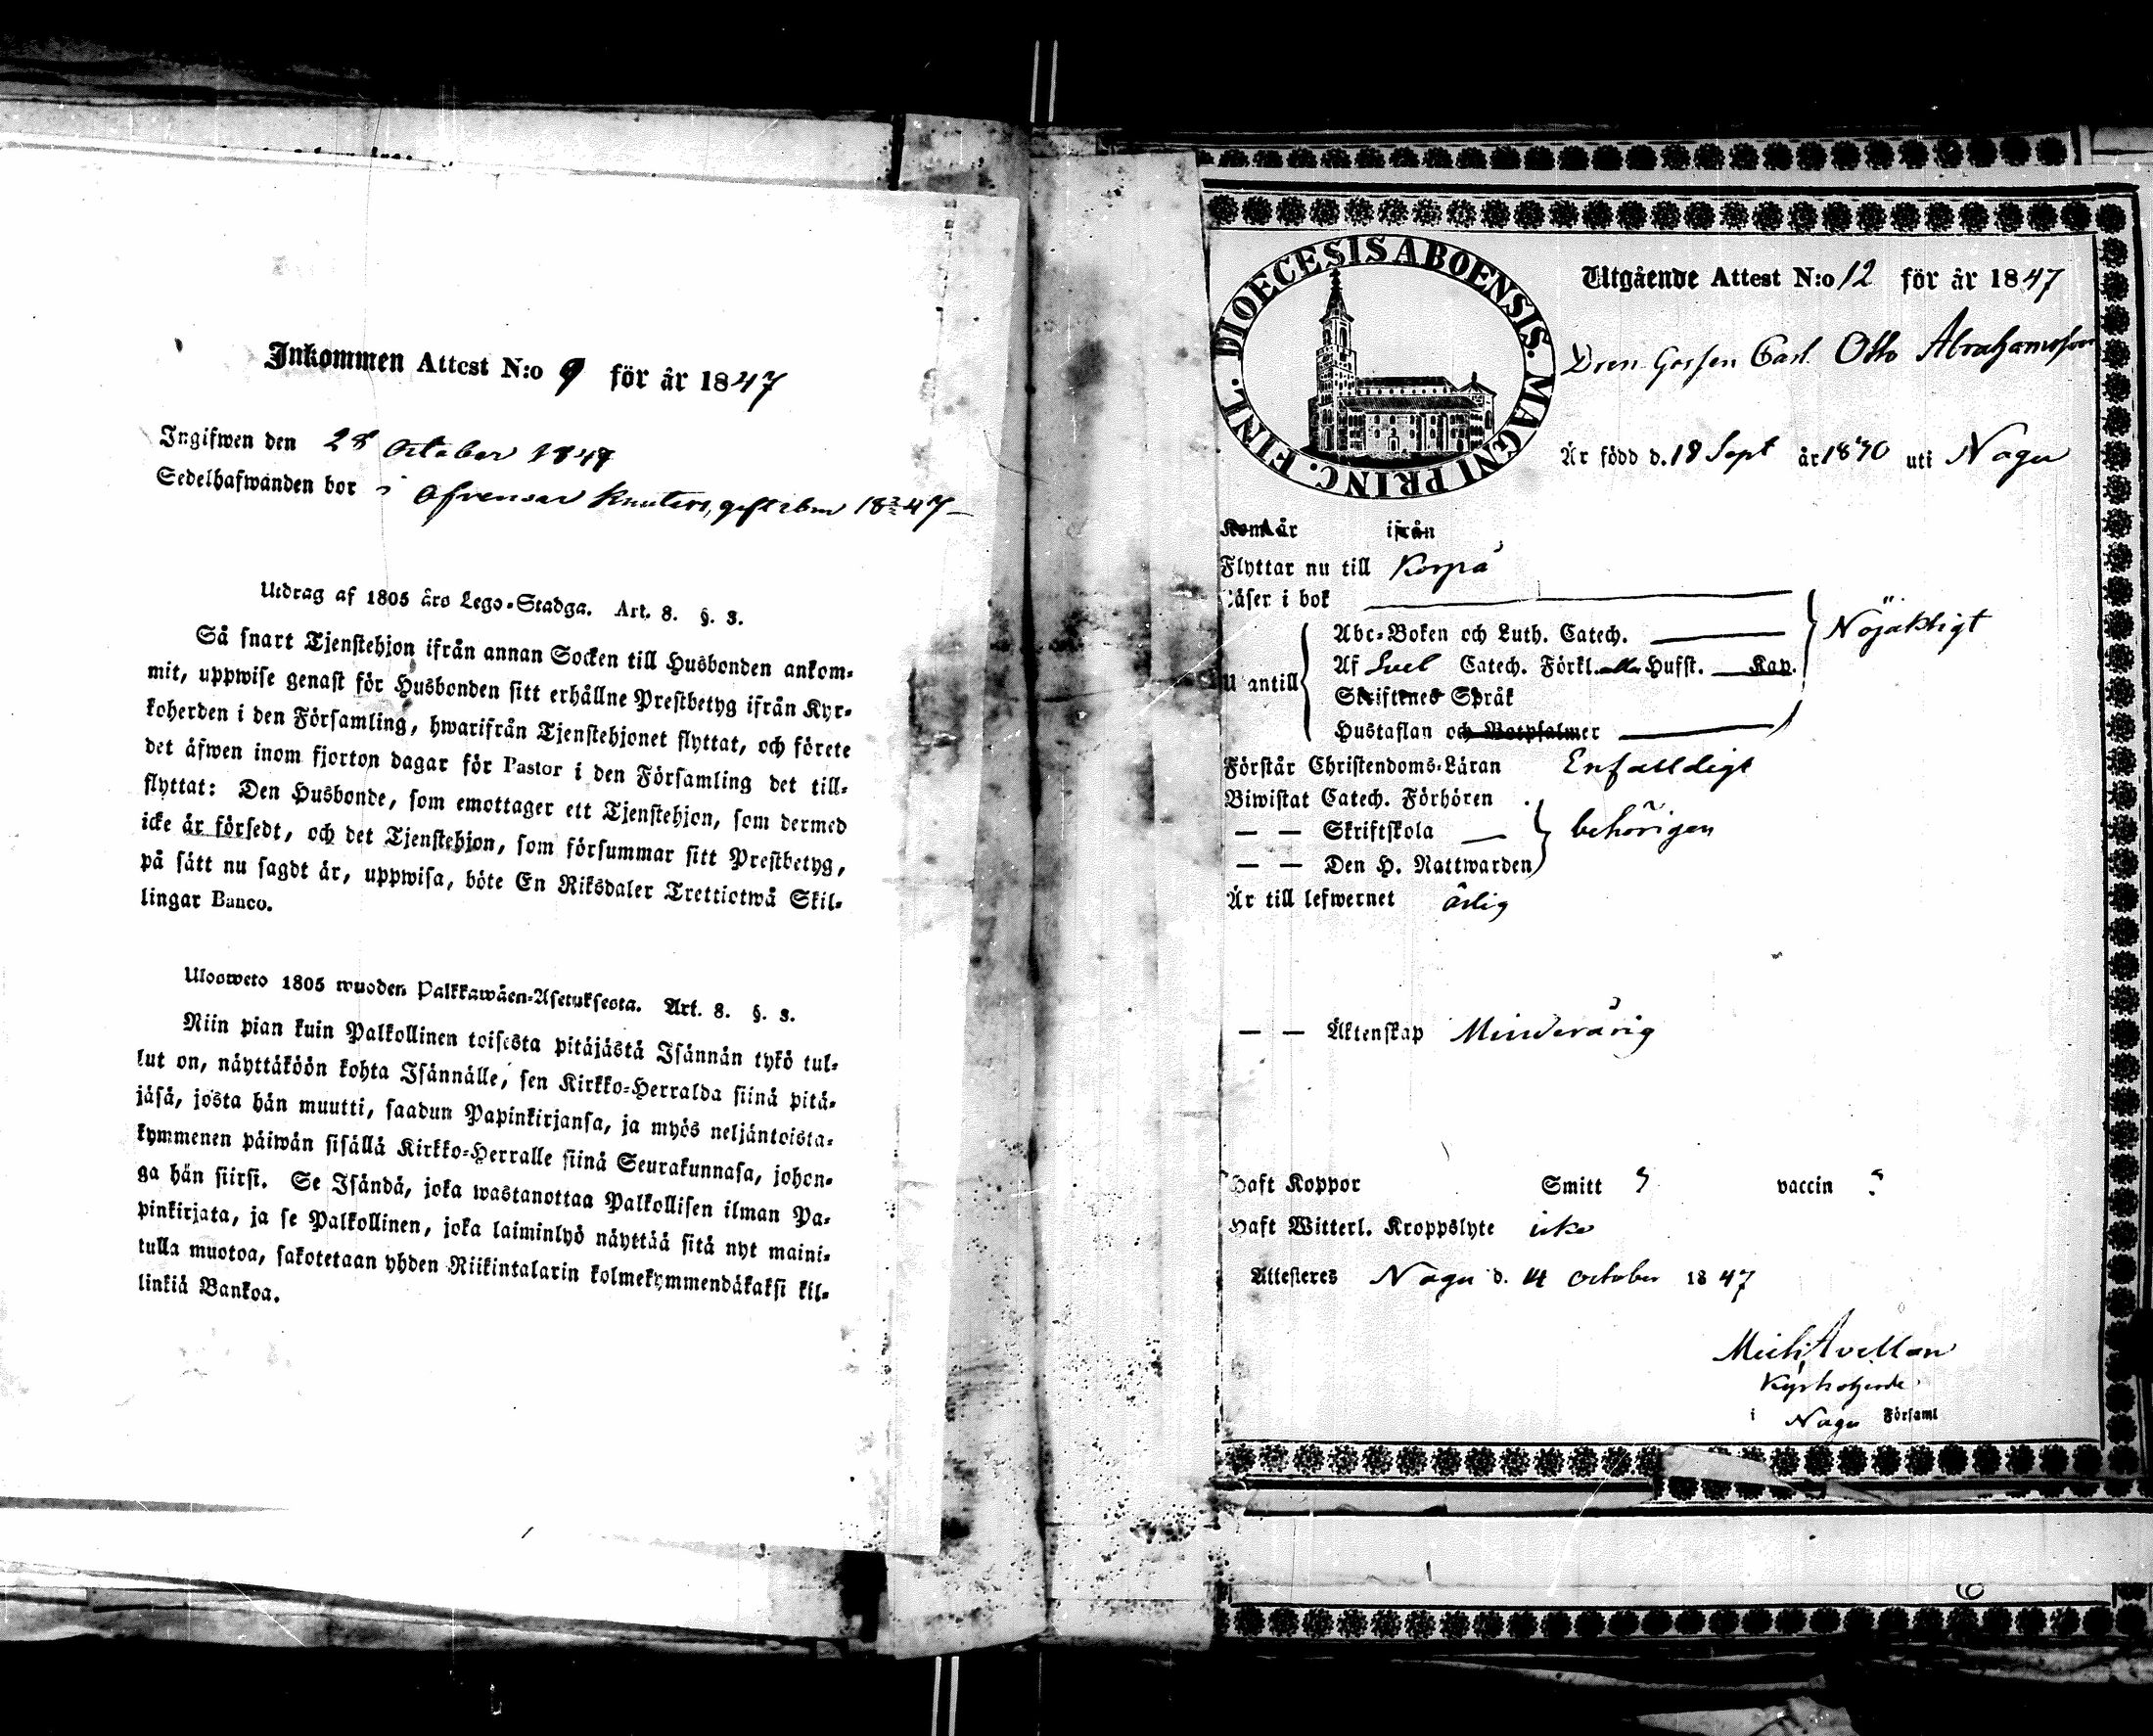 Inkommen Attest N:o 9 för år 1847
Ingifwen den 28 October 1847
Sedelhafwanden bor i
Utdrag af 1805 års Lego-Stadga. Art. 8. §. 3.
Så snart Tjenstehjon ifrån annan Socken till Husbonden ankom-
mit, uppwise genast för Husbonden sitt erhållne Prestbetyg ifrån Kyr-
koherden i den Församling, hwarifrån Tjenstehjonet flyttat, och förete
det äfwen inom fjorton dagar för Pastor i den Församling det till-
flyttat: Den Husbonde, som emottager ett Tjenstehjon, som dermed
icke är försedt, och det Tjenstehjon, som försummar sitt Prestbetyg,
på sätt nu sagdt är, uppwisa, böte En Riksdaler Trettiotwå Skil-
lingar Banco.
Ulosweto 1805 wuoden Palkkawäen-Asetuksesta. Art. 8. §. 3.
Niin pian kuin Palkollinen toisesta pitäjästä Isännän tykö tul-
lut on, näyttäköön kohta Isännälle, sen Kirkko-Herralda siinä pitä-
jäsä, josta hän muutti, saadun Papinkirjansa, ja myös neljäntoista-
kymmenen päiwän sisällä Kirkko-Herralle siinä Seurakunnasa, johon-
ga hän siirsi. Se Isändä, joka wastanottaa Palkollisen ilman Pa-
pinkirjata, ja se Palkollinen, joka laiminlyö näyttää sitä nyt maini-
tulla muotoa, sakotetaan yhden Riikintalarin kolmekymmendäkaksi kil-
linkiä Bankoa.
FINL. DIOECESIS ABOENSIS. MAGNI PRINC.
Utgående Attest N:o 12 för år 1847
Dren Gossen Carl Otto Abrahamsson
Är född d. 18 Sept år 1830 uti Nagu
Kom år ifrån
Flyttar nu till Korpå
Läser i bok
Abc-Boken och Luth. Catech.
Nöjaktigt
Af Sveb Catech. Förkl. alla Hufst. Kap.
Utantill
Skriftenes Språk
Hustaflan och Botpsalmer
Förstår Christendoms-Läran Enfalldigt
Biwistat Catech. Förhören
— — Skriftskola behörigen
— — Den H. Nattwarden
Är till lefwernet ärlig
— — Äktenskap Minderårig
Haft Koppor Smitt ? vaccin ?
Haft Witterl. Kroppslyte icke
Attesteres Nagu d. 14 October 1847
Mich Avellan
Kyrkoherde
i Nagu Församl